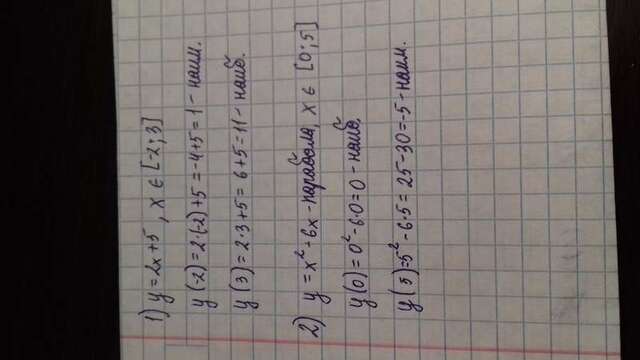 1) y = 2x + 5 , x ∈ [-2; 3]
y(-2) = 2·(-2) + 5 = -4 + 5 = 1 - наим.
y(3) = 2·3 + 5 = 6 + 5 = 11 - наиб.
2) y = x² - 6x - парабола, x ∈ [0; 5]
y(0) = 0² - 6·0 = 0 - наиб.
y(5) = 5² - 6·5 = 25 - 30 = -5 - наим.